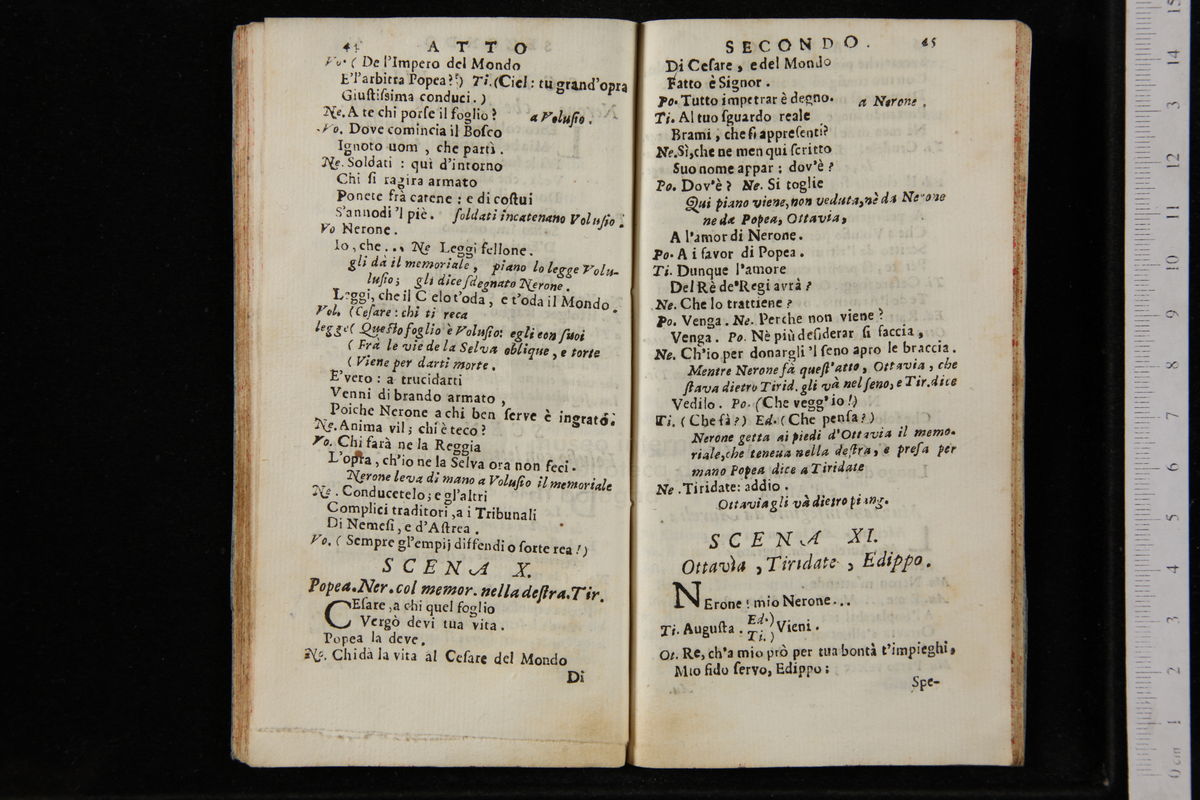 44 ATTO
Vo. ( De l'Impero del Mondo
E l'arbitra Popea?!) Ti. (Ciel: tu grand'opra
Giustiſsima conduci.)
Ne. A te chi porſe il foglio? a Voluſio.
Vo. Dove comincia il Boſco
Ignoto uom, che partì.
Ne. Soldati: quì d'intorno
Chi ſi ragira armato
Ponete frà catene: e di coſtui
S'annodi 'l piè. ſoldati incatenano Voluſio.
Vo Nerone.
Io, che ... Ne Leggi fellone.
gli dà il memoriale, piano lo legge Volu-
luſio; gli dice ſdegnato Nerone.
Leggi, che il Cielo t'oda, e t'oda il Mondo.
Vol. (Ceſare: chi ti reca
legge( Queſto foglio è Voluſio: egli con ſuoi
( Frà le vie de la Selva oblique, e torte
( Viene per darti morte.
E'vero: a trucidarti
Venni di brando armato,
Poiche Nerone a chi ben ſerve è ingrato.
Ne. Anima vil; chi è teco?
Vo. Chi farà ne la Reggia
L'opra, ch'io ne la Selva ora non feci.
Nerone leva di mano a Voluſio il memoriale
Ne. Conducetelo; e gl'altri
Complici traditori, a i Tribunali
Di Nemeſi, e d'Aſtrea.
Vo. ( Sempre gl'empij diffendi o ſorte rea!)
SCENA X.
Popea. Ner. col memor. nella deſtra. Tir.
CEſare, a chi quel foglio
Vergò devi tua vita.
Popea la deve.
Ne. Chi dà la vita al Ceſare del Mondo
Di
SECONDO. 45
Di Ceſare, e del Mondo
Fatto è Signor.
Po. Tutto impetrar è degno. a Nerone.
Ti. Al tuo ſguardo reale
Brami, che ſi appreſenti?
Ne. Sì, che ne men qui ſcritto
Suo nome appar: dov'è?
Po. Dov'è? Ne. Si toglie
Qui piano viene, non veduta, nè da Nerone
ne da Popea, Ottavia,
A l'amor di Nerone.
Po. A i favor di Popea.
Ti. Dunque l'amore
Del Rè de' Regi avrà?
Ne. Che lo trattiene?
Po. Venga. Ne. Perche non viene?
Venga. Po. Nè più deſiderar ſi faccia,
Ne. Ch'io per donargli 'l ſeno apro le braccia.
Mentre Nerone fà queſt'atto, Ottavia, che
ſtava dietro Tirid. gli và nel ſeno, e Tir. dice
Vedilo. Po. (Che vegg'io!)
Ti. ( Che fà?) Ed. ( Che penſa?)
Nerone getta ai piedi d'Ottavia il memo-
riale, che teneua nella deſtra, e preſa per
mano Popea dice a Tiridate
Ne. Tiridate: addio.
Ottavia gli và dietro piang.
SCENA XI.
Ottavia, Tiridate, Edippo.
NErone! mio Nerone...
Ti. Auguſta. Ed.) Ti.) Vieni.
Ot. Re, ch'a mio prò per tua bontà t'impieghi,
Mio fido ſervo, Edippo:
Spe-